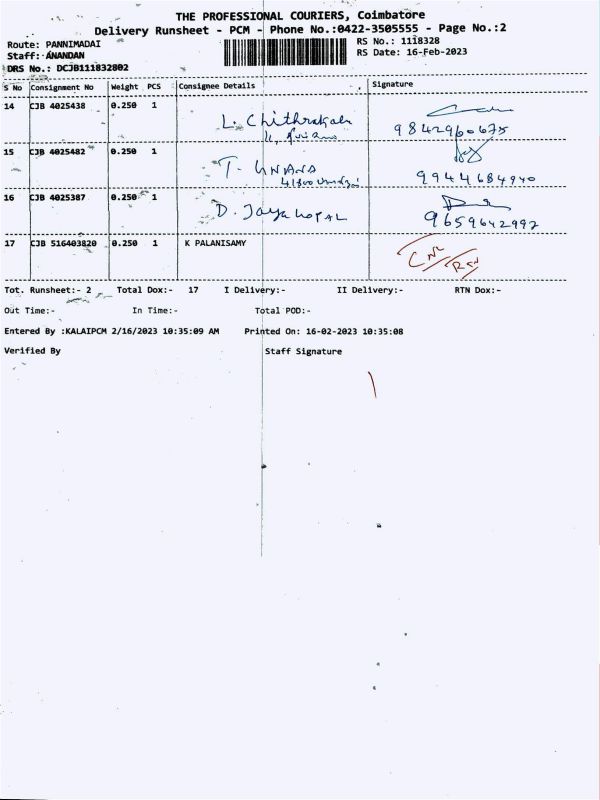 THE PROFESSIONAL COURIERS, Coimbatore
Delivery Runsheet - PCM - Phone No.:0422-3505555 - Page No.:2
Route: PANNIMADAI
RS No.: 1118328
Staff: ANANDAN
RS Date: 16-Feb-2023
DRS No.: DCJB111832802
S No Consignment No Weight PCS Consignee Details Signature
14 CJB 4025438 0.250 1 L. Chithrakala
9842960675
15 CJB 4025482 0.250 1 T.
9944684940
16 CJB 4025387 0.250 1 D. Jayagopal
9659642992
17 CJB 516403820 0.250 1 K PALANISAMY
Tot. Runsheet:- 2 Total Dox:- 17 I Delivery:- II Delivery:- RTN Dox:-
Out Time:- In Time:- Total POD:-
Entered By :KALAIPCM 2/16/2023 10:35:09 AM Printed On: 16-02-2023 10:35:08
Verified By Staff Signature